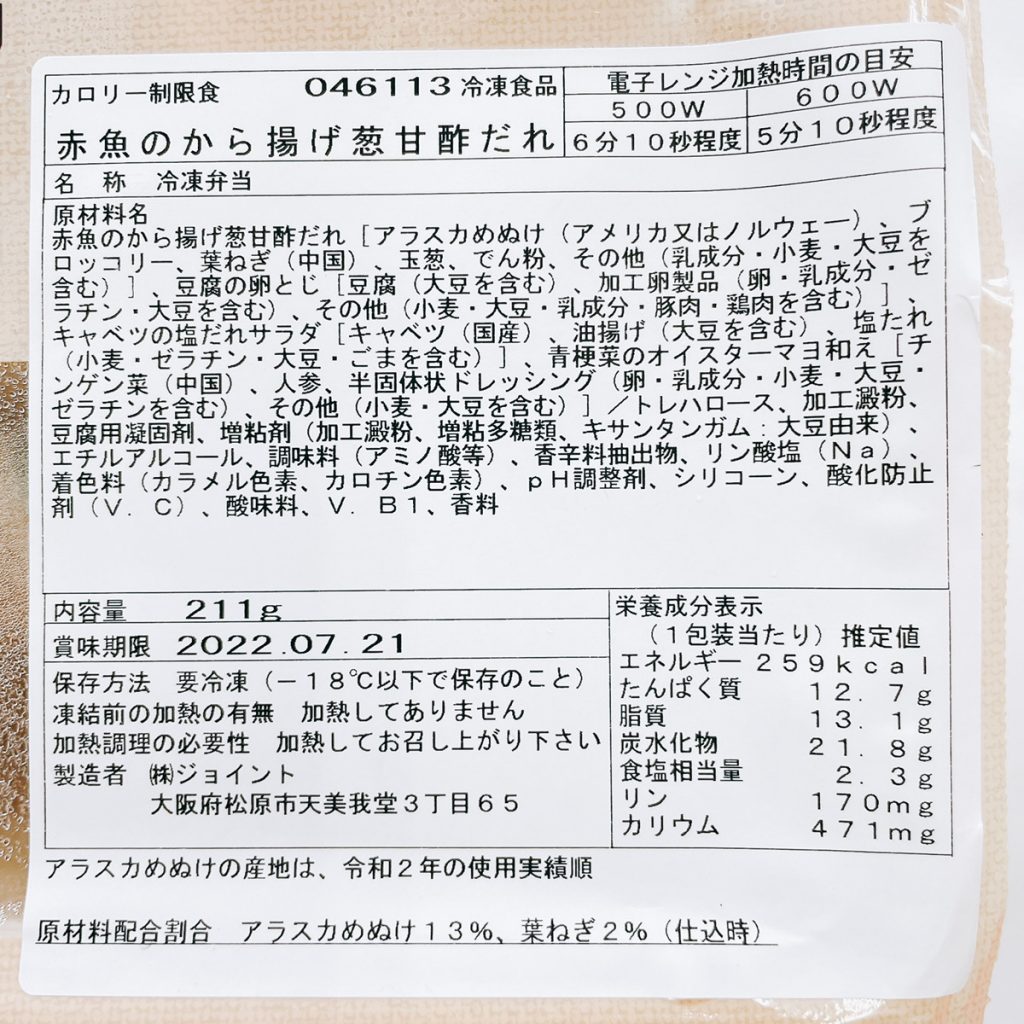 カロリー制限食 046113 冷凍食品
赤魚のから揚げ葱甘酢だれ
電子レンジ加熱時間の目安
500W 600W
6分10秒程度 5分10秒程度
名 称 冷凍弁当
原材料名
赤魚のから揚げ葱甘酢だれ［アラスカめぬけ（アメリカ又はノルウェー）、ブ
ロッコリー、葉ねぎ（中国）、玉葱、でん粉、その他（乳成分・小麦・大豆を
含む）］、豆腐の卵とじ［豆腐（大豆を含む）、加工卵製品（卵・乳成分・ゼ
ラチン・大豆を含む）、その他（小麦・大豆・乳成分・豚肉・鶏肉を含む）］、
キャベツの塩だれサラダ［キャベツ（国産）、油揚げ（大豆を含む）、塩たれ
（小麦・ゼラチン・大豆・ごまを含む）］、青梗菜のオイスターマヨ和え［チ
ンゲン菜（中国）、人参、半固体状ドレッシング（卵・乳成分・小麦・大豆・
ゼラチンを含む）、その他（小麦・大豆を含む）］／トレハロース、加工澱粉、
豆腐用凝固剤、増粘剤（加工澱粉、増粘多糖類、キサンタンガム：大豆由来）、
エチルアルコール、調味料（アミノ酸等）、香辛料抽出物、リン酸塩（Na）、
着色料（カラメル色素、カロチン色素）、pH調整剤、シリコーン、酸化防止
剤（V．C）、酸味料、V．B1、香料
内容量 211g
賞味期限 2022.07.21
保存方法 要冷凍（－18℃以下で保存のこと）
凍結前の加熱の有無 加熱してありません
加熱調理の必要性 加熱してお召し上がり下さい
製造者 ㈱ジョイント
大阪府松原市天美我堂3丁目65
栄養成分表示
（1包装当たり）推定値
エネルギー 259kcal
たんぱく質 12．7g
脂質 13．1g
炭水化物 21．8g
食塩相当量 2．3g
リン 170mg
カリウム 471mg
アラスカめぬけの産地は、令和2年の使用実績順
原材料配合割合 アラスカめぬけ13%、葉ねぎ2%（仕込時）